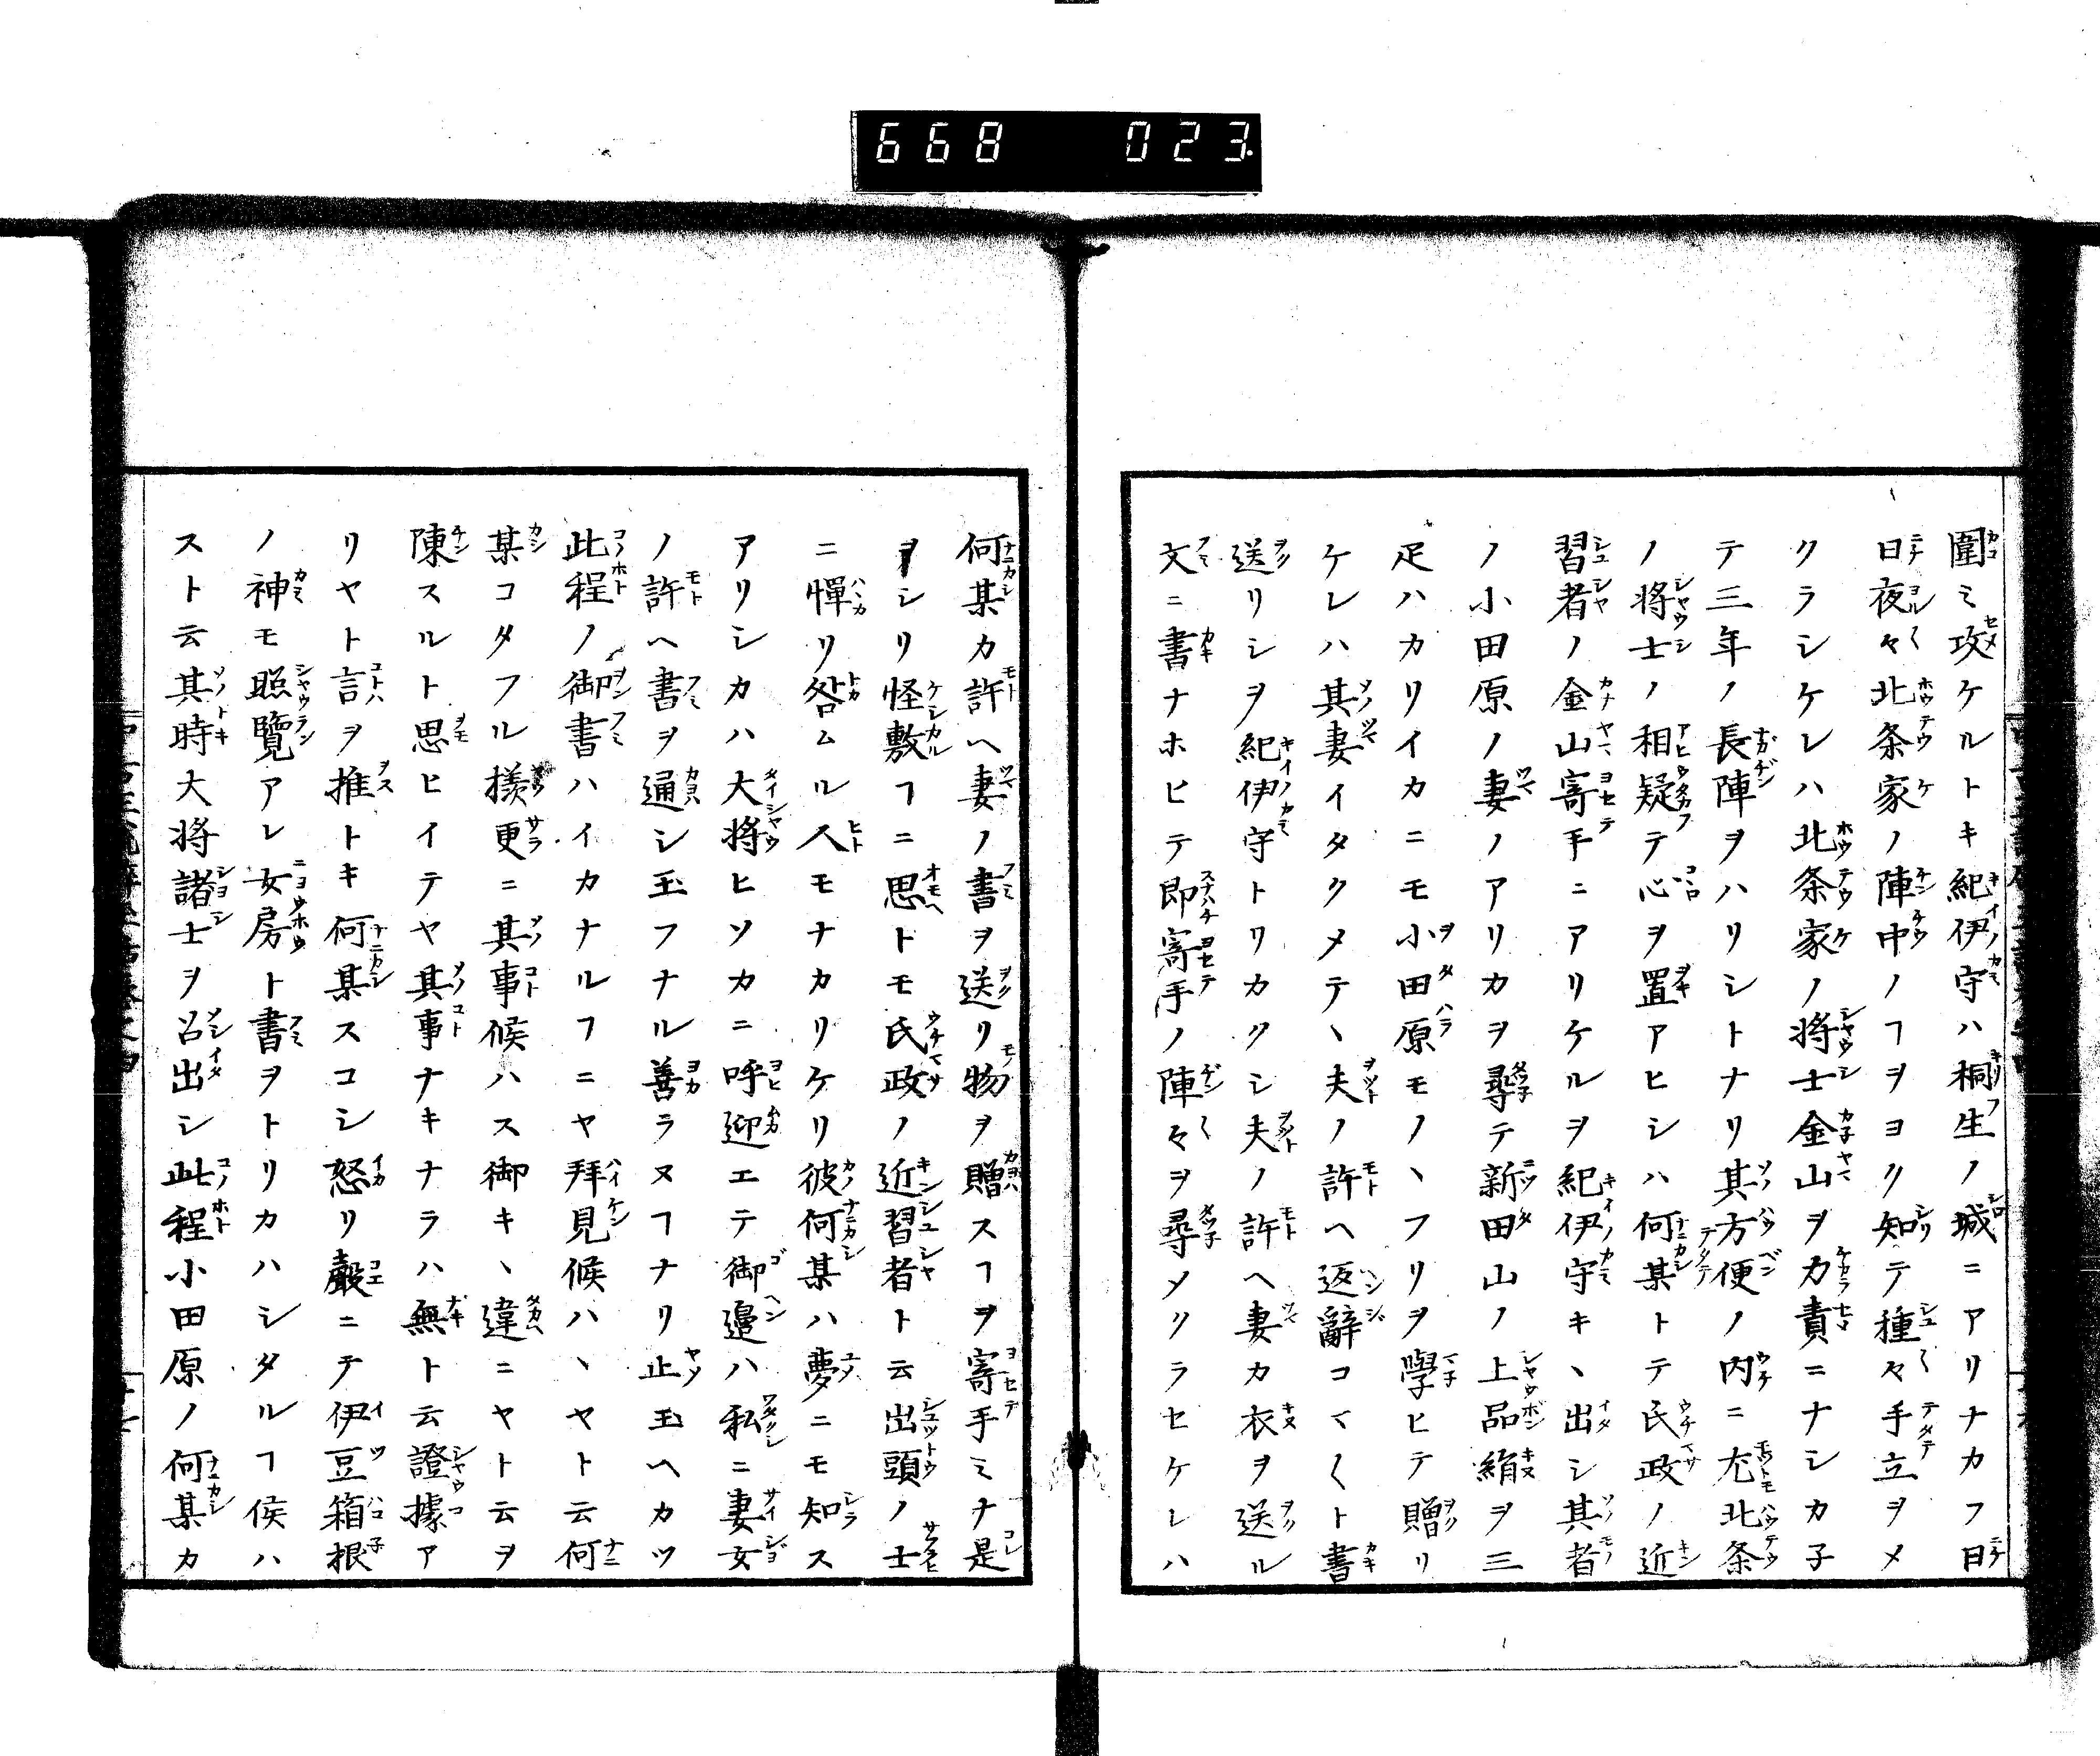 668 023.
圍ミ攻ケルトキ紀伊守ハ桐生ノ城ニアリナカフ日
日夜々北条家ノ陣中ノヿヲヨク知テ種々手立ヲメ
クラシケレハ北条家ノ将士金山ヲカ責ニナシカ子
テ三年ノ長陣ヲハリシトナリ其方便ノ内ニ尤北条
ノ将士ノ相疑テ心ヲ置アヒシハ何某トテ氏政ノ近
習者ノ金山寄手ニアリケルヲ紀伊守キヽ出シ其者
ノ小田原ノ妻ノアリカヲ尋テ新田山ノ上品絹ヲ三
疋ハカリイカニモ小田原モノヽフリヲ學ヒテ贈リ
ケレハ其妻イタクメテヽ夫ノ許ヘ返辭コマ〱ト書
送リシヲ紀伊守トリカクシ夫ノ許ヘ妻カ衣ヲ送ル
文ニ書ナホヒテ即寄手ノ陣々ヲ尋メクラセケレハ
何某カ許ヘ妻ノ書ヲ送リ物ヲ贈スヿヲ寄手ミナ是
ヲシリ怪敷フニ思トモ氏政ノ近習者ト云出頭ノ士
ニ憚リ咎ムル人モナカリケリ彼何某ハ夢ニモ知ス
アリシカハ大將ヒソカニ呼迎エテ御邉ハ私ニ妻女
ノ許ヘ書ヲ通シ玉フナル善ラヌヿナリ止玉ヘカツ
此程ノ御書ハイカナルヿニヤ拜見候ハヽヤト云何
某コタフル様更ニ其事候ハス御キヽ違ニヤト云ヲ
陳スルト思ヒイテヤ其事ナキナラハ無ト云證據ア
リヤト言ヲ推トキ何某スコシ怒リ聲ニテ伊豆箱根
ノ神モ照覽アレ女房ト書ヲトリカハシタルヿ侯ハ
スト云其時大将諸士ヲ召出シ此程小田原ノ何某カ